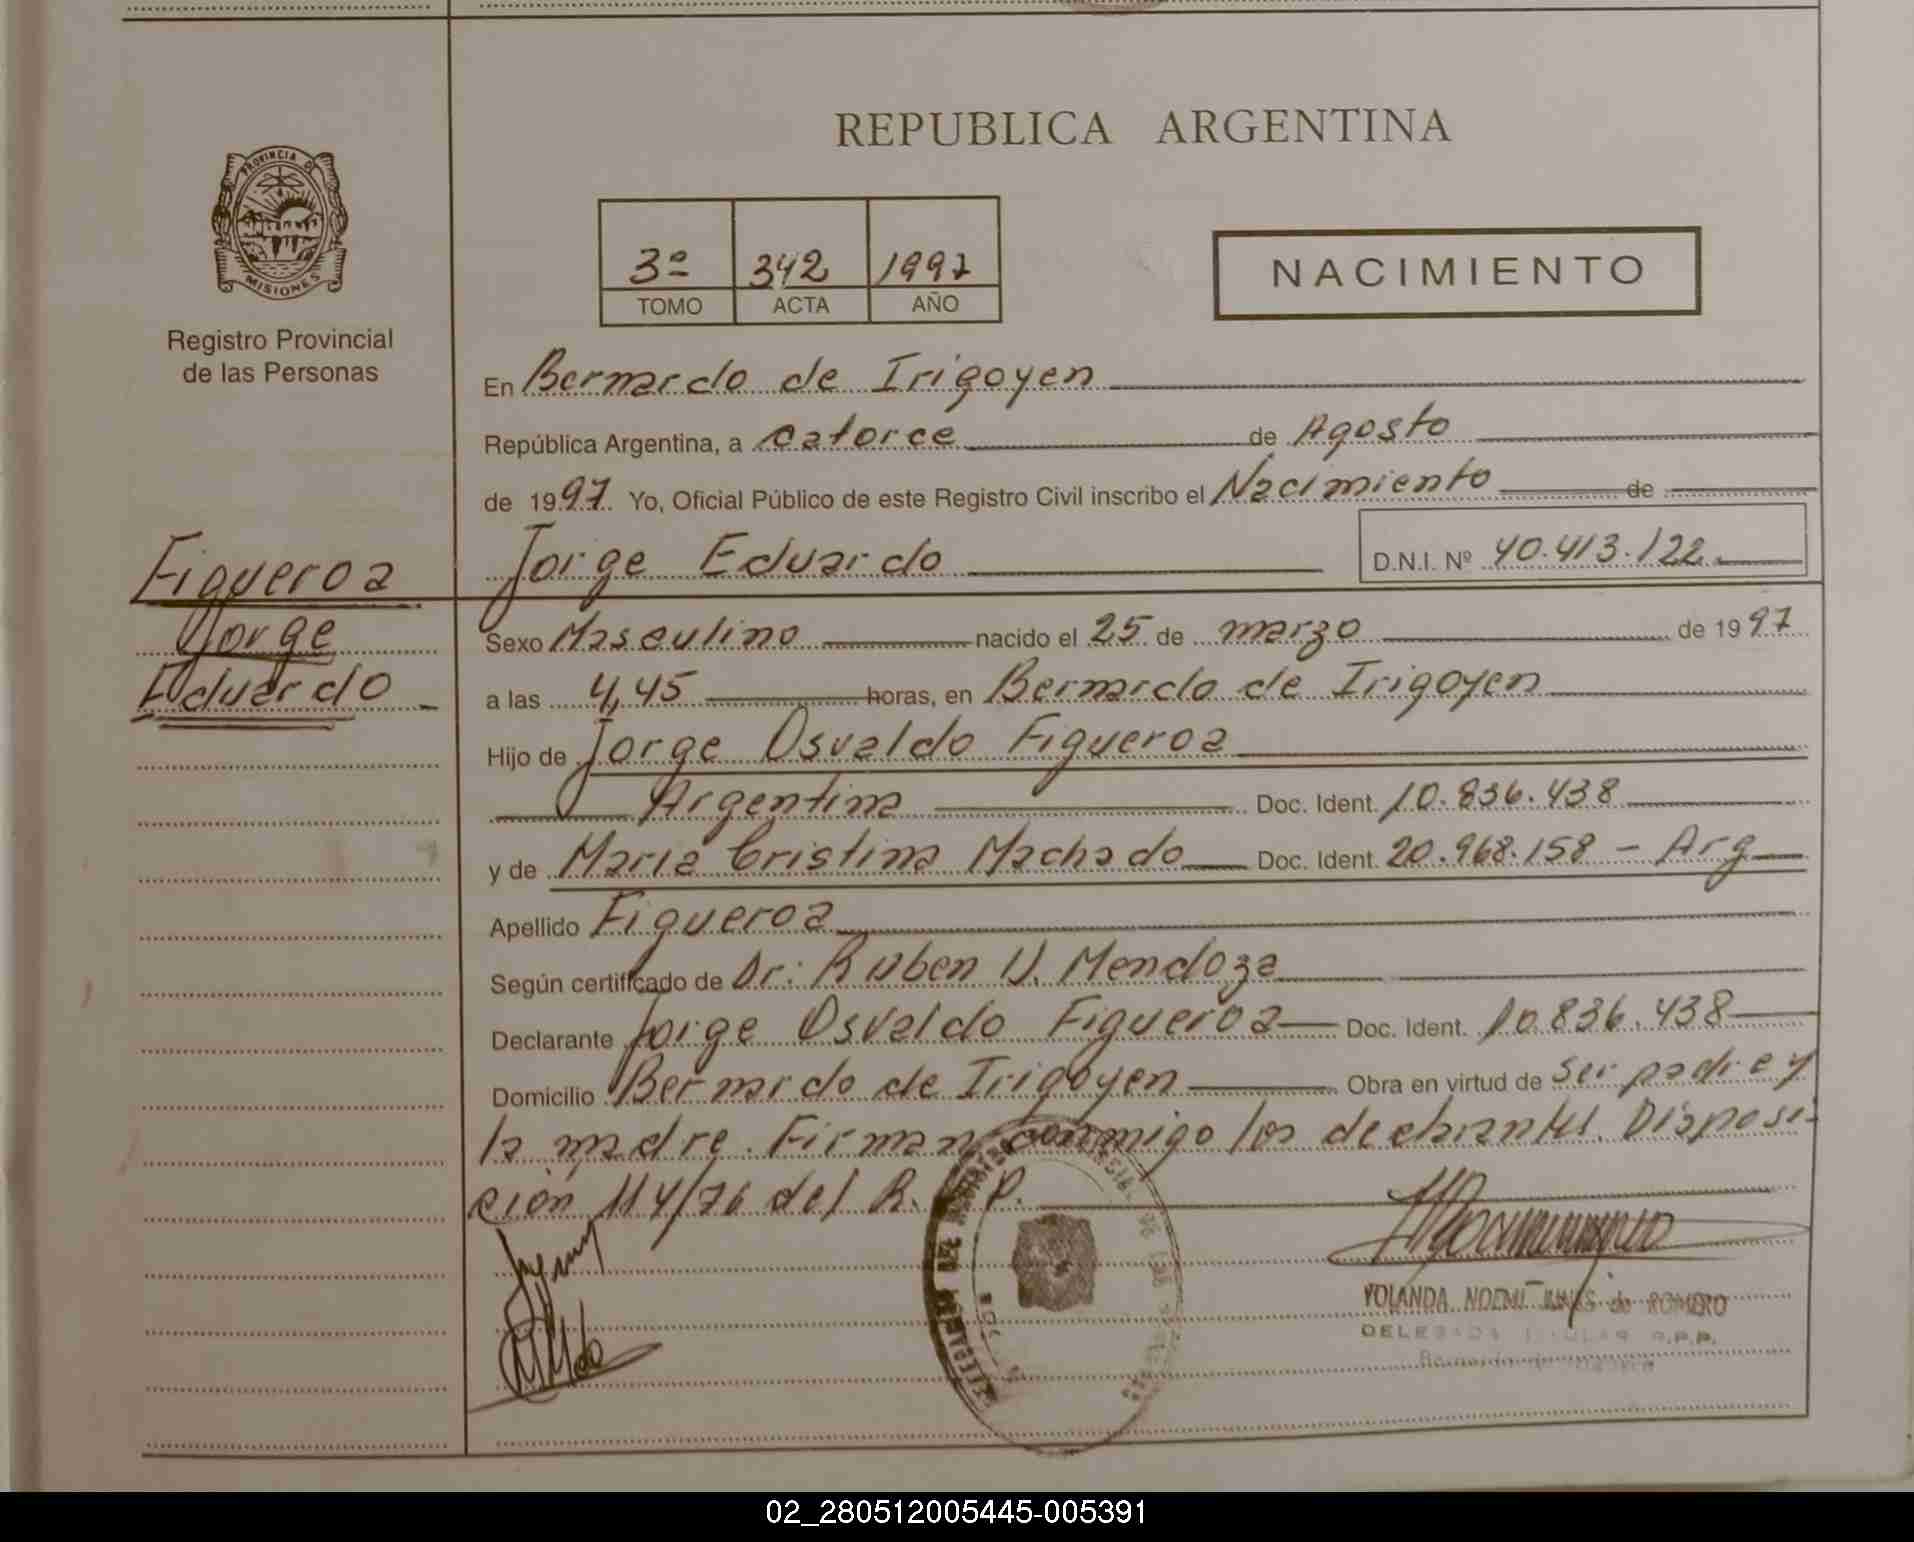 REPUBLICA ARGENTINA
PROVINCIA DE
MISIONES
Registro Provincial
de las Personas
3º 342 1997
TOMO ACTA AÑO
NACIMIENTO
En Bernardo de Irigoyen
República Argentina, a catorce de Agosto
de 1997. Yo, Oficial Público de este Registro Civil inscribo el Nacimiento de
Figueroa
Jorge
Eduardo
Jorge Eduardo D.N.I. Nº 40.413.122.
Sexo Masculino nacido el 25 de marzo de 1997
a las 4,45 horas, en Bernardo de Irigoyen
Hijo de Jorge Osvaldo Figueroa
Argentina Doc. Ident. 10.836.438
y de Maria Cristina Machado Doc. Ident. 20.968.158 - Arg
Apellido Figueroa
Según certificado de Dr: Ruben D. Mendoza
Declarante Jorge Osvaldo Figueroa Doc. Ident. 10.836.438
Domicilio Bernardo de Irigoyen Obra en virtud de ser padre y
la madre. Firman conmigo los declarantes. Disposi-
ción 114/76 del R. P.
YOLANDA NOEMI de ROMERO
DELEGADA TITULAR R.P.P.
Bernardo de Irigoyen
02_280512005445-005391